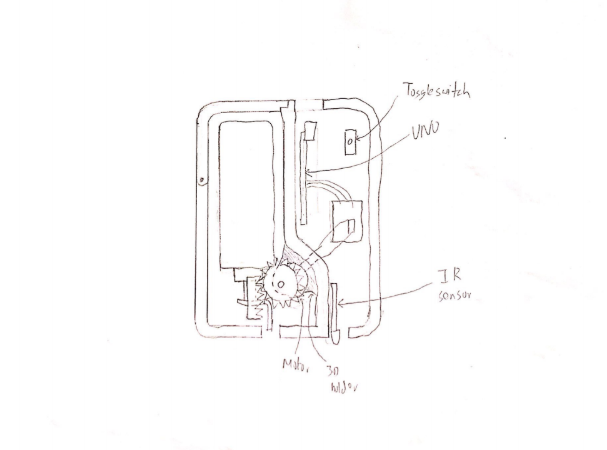 Toggle switch
UNO
IR
sensor
Motor
3D
holder